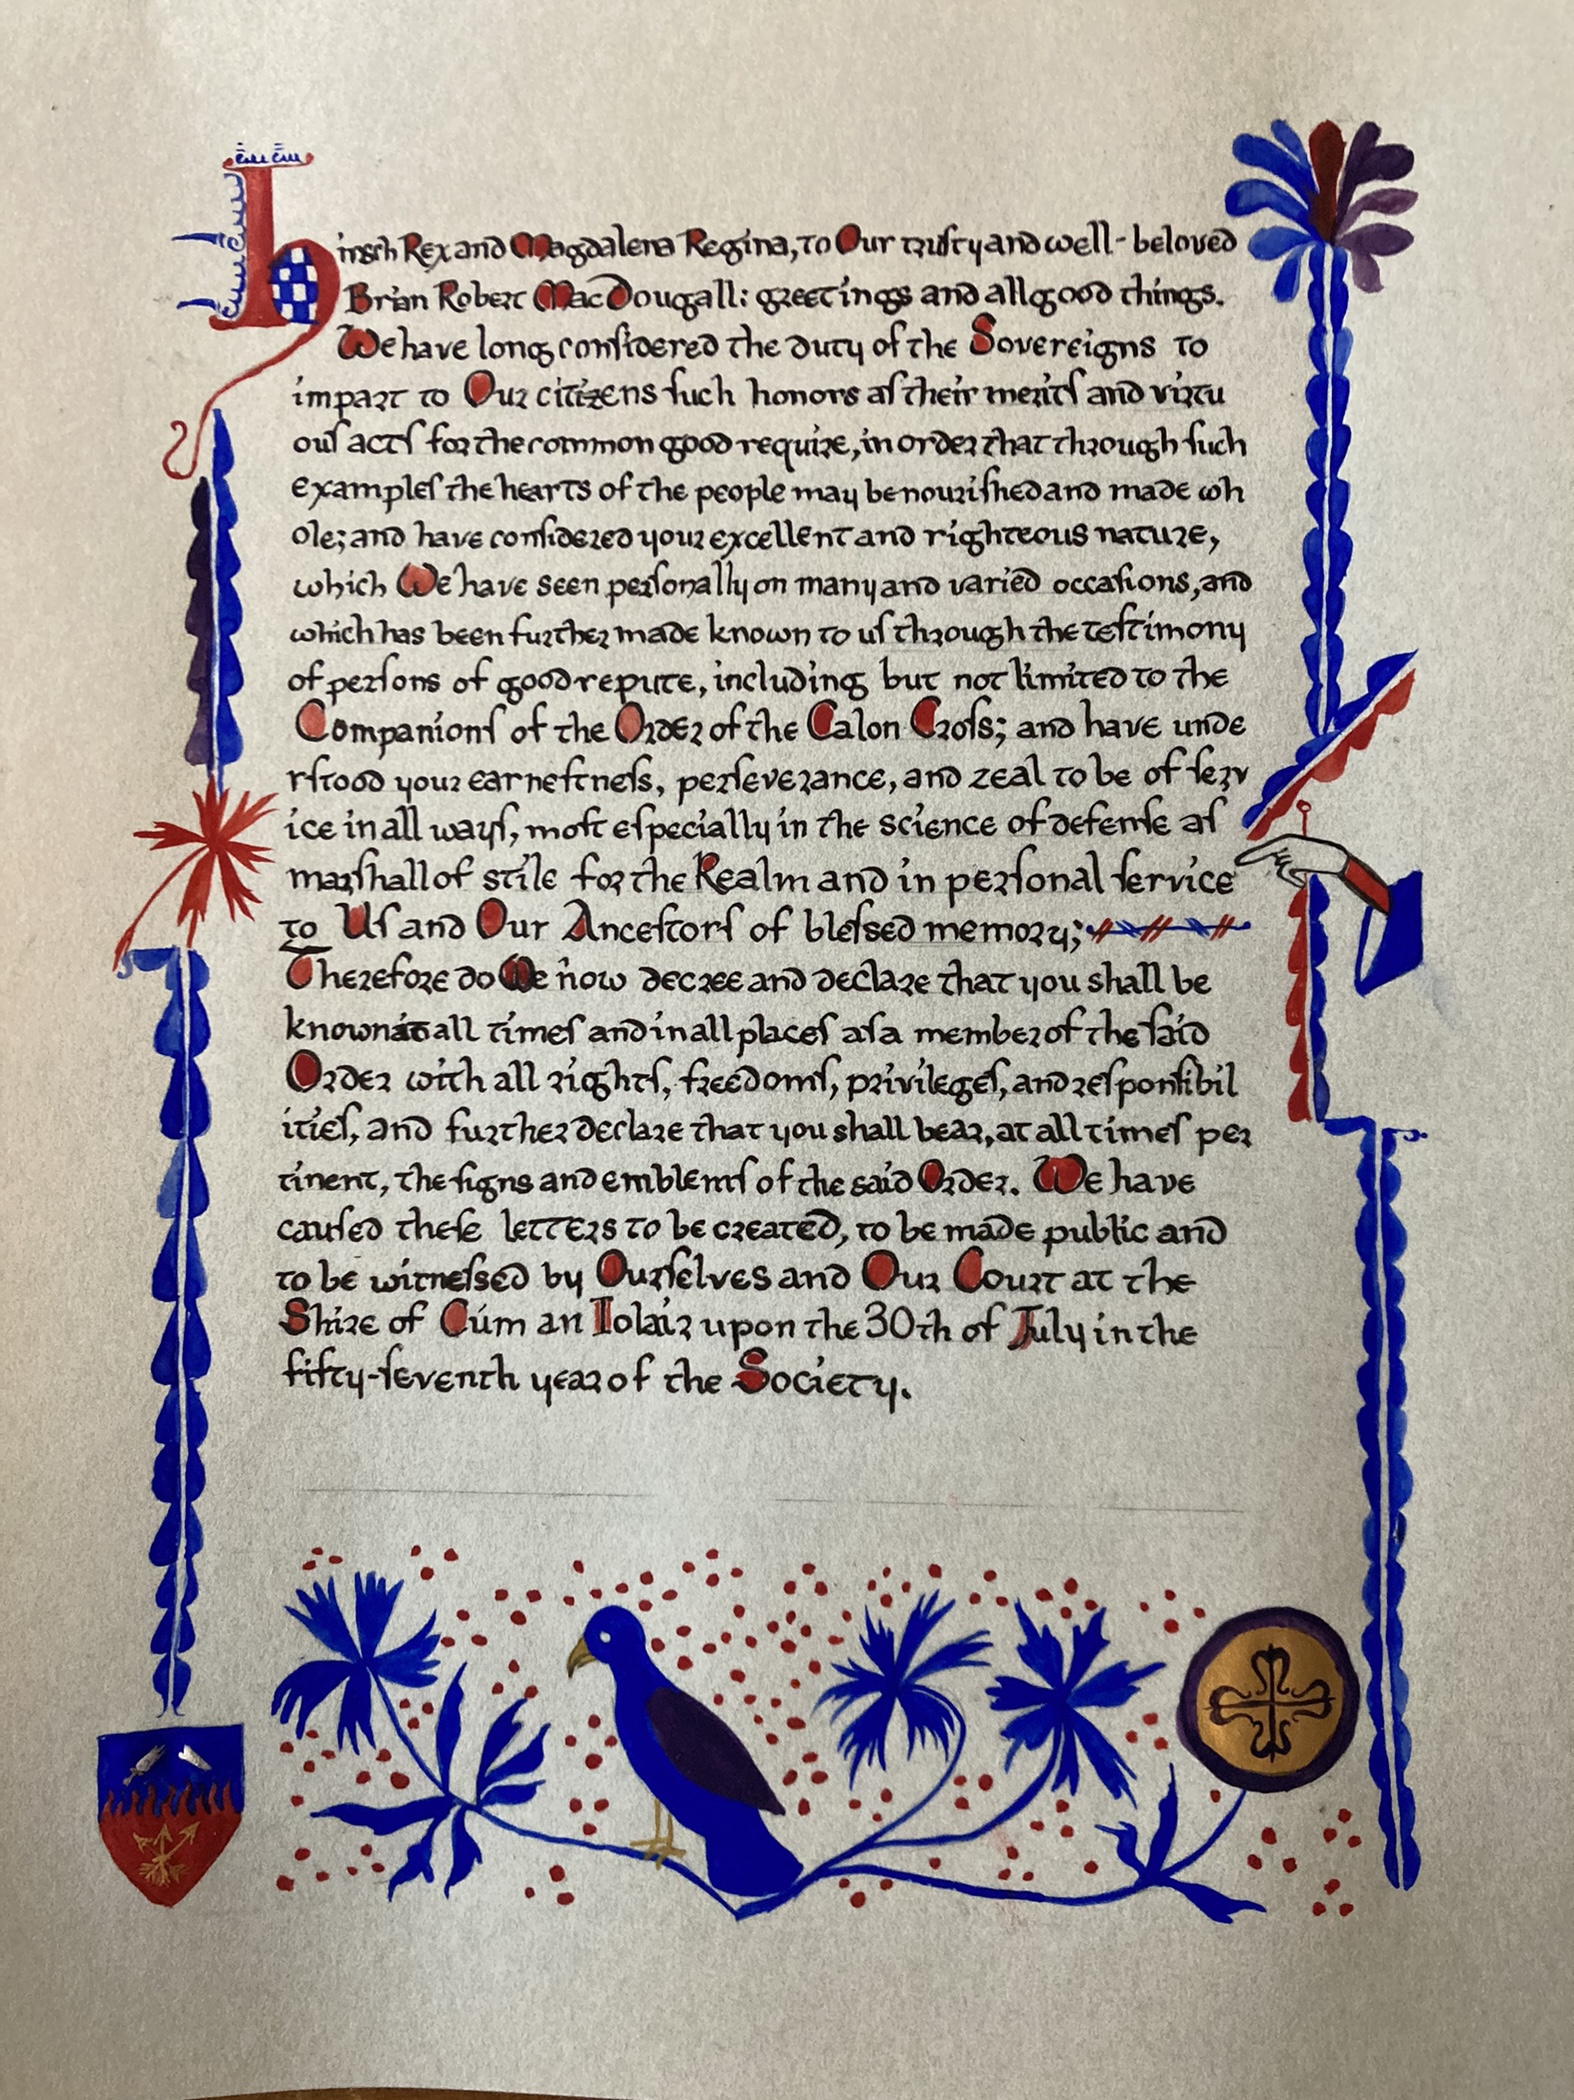 Hirsch Rex and Magdalena Regina, to Our truſty and well-beloved
Brian Robert MacDougall: greetings and all good things.
We have long conſidered the duty of the Sovereigns to
impart to Our citizens ſuch honors aſ their meritſ and virtu
ouſ actſ for the common good require, in order that through ſuch
exampleſ the hearts of the people may be nouriſhed and made wh
ole; and have conſidered your excellent and righteous nature,
which We have seen perſonally on many and varied occaſions, and
which has been further made known to uſ through the teſtimony
of perſons of good repute, including but not limited to the
Companionſ of the Order of the Calon Croſs; and have unde
rſtood your earneſtneſs, perſeverance, and zeal to be of ſerv
ice in all wayſ, moſt eſpecially in the science of defenſe aſ
marſhall of stile for the Realm and in perſonal ſervice
to Uſ and Our Anceſtorſ of bleſsed memory;
Therefore do We now decree and declare that you shall be
known at all timeſ and in all placeſ aſ a member of the ſaid
Order with all rightſ, freedomſ, privilegeſ, and reſponſibil
itieſ, and further declare that you shall bear, at all timeſ per
tinent, the ſigns and emblemſ of the said Order. We have
cauſed theſe letters to be created, to be made public and
to be witneſsed by Ourſelves and Our Court at the
Shire of Cúm an Iolair upon the 30th of July in the
fifty-ſeventh year of the Society.